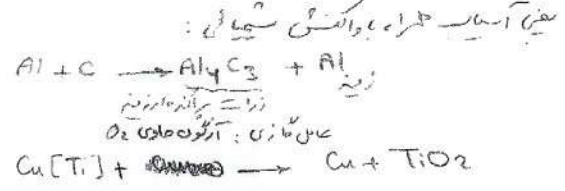 یعنی آسیاب همراه با واکنش شیمیائی :
Al + C ⟶ Al4C3 + Al
زمینه
ذرات پراکنده در زمینه
عامل گازی : آرگون حاوی O2
Cu[Ti] + ⟶ Cu + TiO2